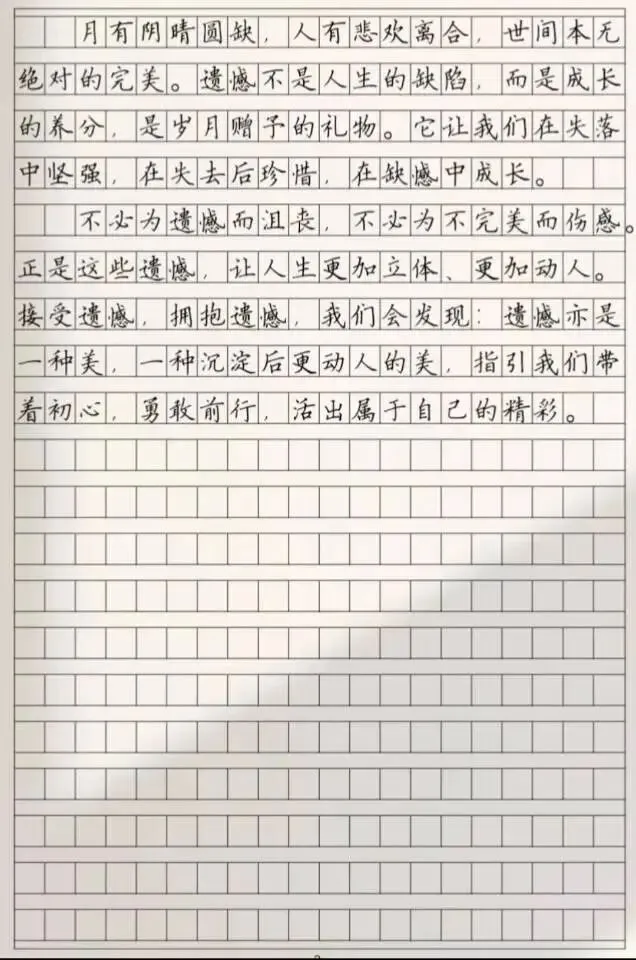 月有阴晴圆缺，人有悲欢离合，世间本无
绝对的完美。遗憾不是人生的缺陷，而是成长
的养分，是岁月赠予的礼物。它让我们在失落
中坚强，在失去后珍惜，在缺憾中成长。
不必为遗憾而沮丧，不必为不完美而伤感。
正是这些遗憾，让人生更加立体、更加动人。
接受遗憾，拥抱遗憾，我们会发现：遗憾亦是
一种美，一种沉淀后更动人的美，指引我们带
着初心，勇敢前行，活出属于自己的精彩。